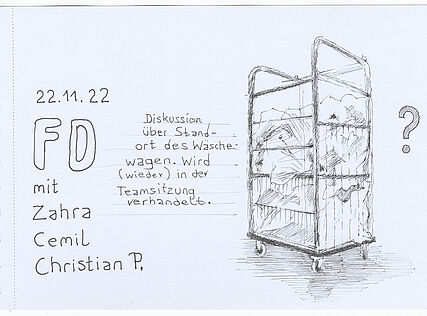 22.11.22
FD
mit
Zahra
Cemil
Christian P.
Diskussion
über Stand-
ort des Wäsche-
wagen. Wird
(wieder) in der
Teamsitzung
verhandelt.
?